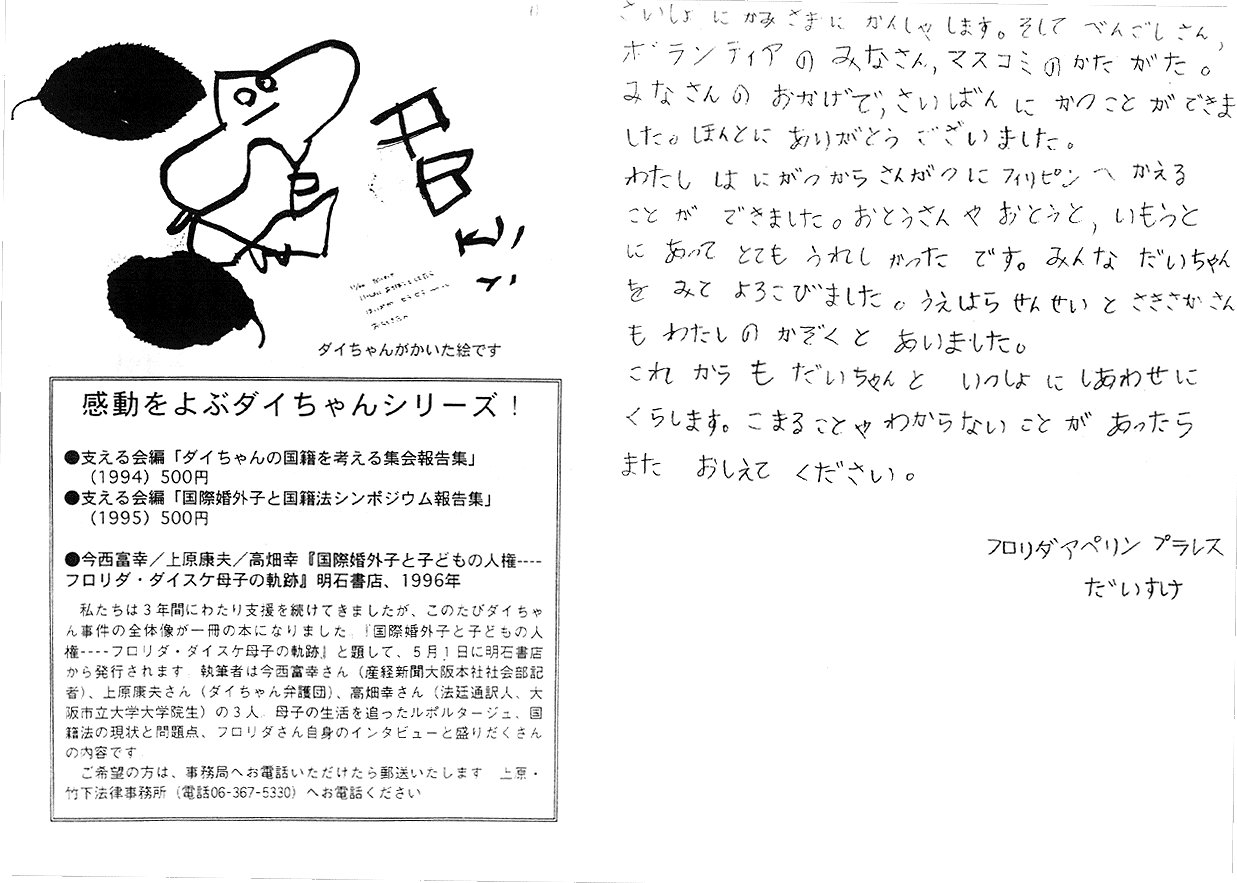 ダイちゃんがかいた絵です
感動をよぶダイちゃんシリーズ！
●支える会編「ダイちゃんの国籍を考える集会報告集」
（1994）500円
●支える会編「国際婚外子と国籍法シンポジウム報告集」
（1995）500円
●今西富幸／上原康夫／高畑幸『国際婚外子と子どもの人権----
フロリダ・ダイスケ母子の軌跡』明石書店、1996年
私たちは３年間にわたり支援を続けてきましたが、このたびダイちゃ
ん事件の全体像が一冊の本になりました。『国際婚外子と子どもの人
権----フロリダ・ダイスケ母子の軌跡』と題して、５月１日に明石書店
から発行されます。執筆者は今西富幸さん（産経新聞大阪本社社会部記
者）、上原康夫さん（ダイちゃん弁護団）、高畑幸さん（法廷通訳人、大
阪市立大学大学院生）の３人。母子の生活を追ったルポルタージュ、国
籍法の現状と問題点、フロリダさん自身のインタビューと盛りだくさん
の内容です。
ご希望の方は、事務局へお電話いただけたら郵送いたします　上原・
竹下法律事務所（電話06-367-5330）へお電話ください
さいしょ に かみさまに かんしゃ します。そして べんごしさん,
ボランティアの みなさん, マスコミのかた がた。
みなさんの おかげで, さいばん に かつことが できま
した。ほんとに ありがとう ございました。
わたし は にがつから さんがつ に フィリピン へ かえる
ことが できました。おとうさん や おとうと, いもうと
に あって とても うれし かった です。みんな だいちゃん
を みて よろこびました。うえはら せんせい と さきさか さん
も わたしの かぞくと あいました。
これ から も だいちゃんと いっしょ に しあわせに
くらします。こまることや わからない ことが あったら
また おしえて ください。
フロリダアペリン プラレス
だいすけ